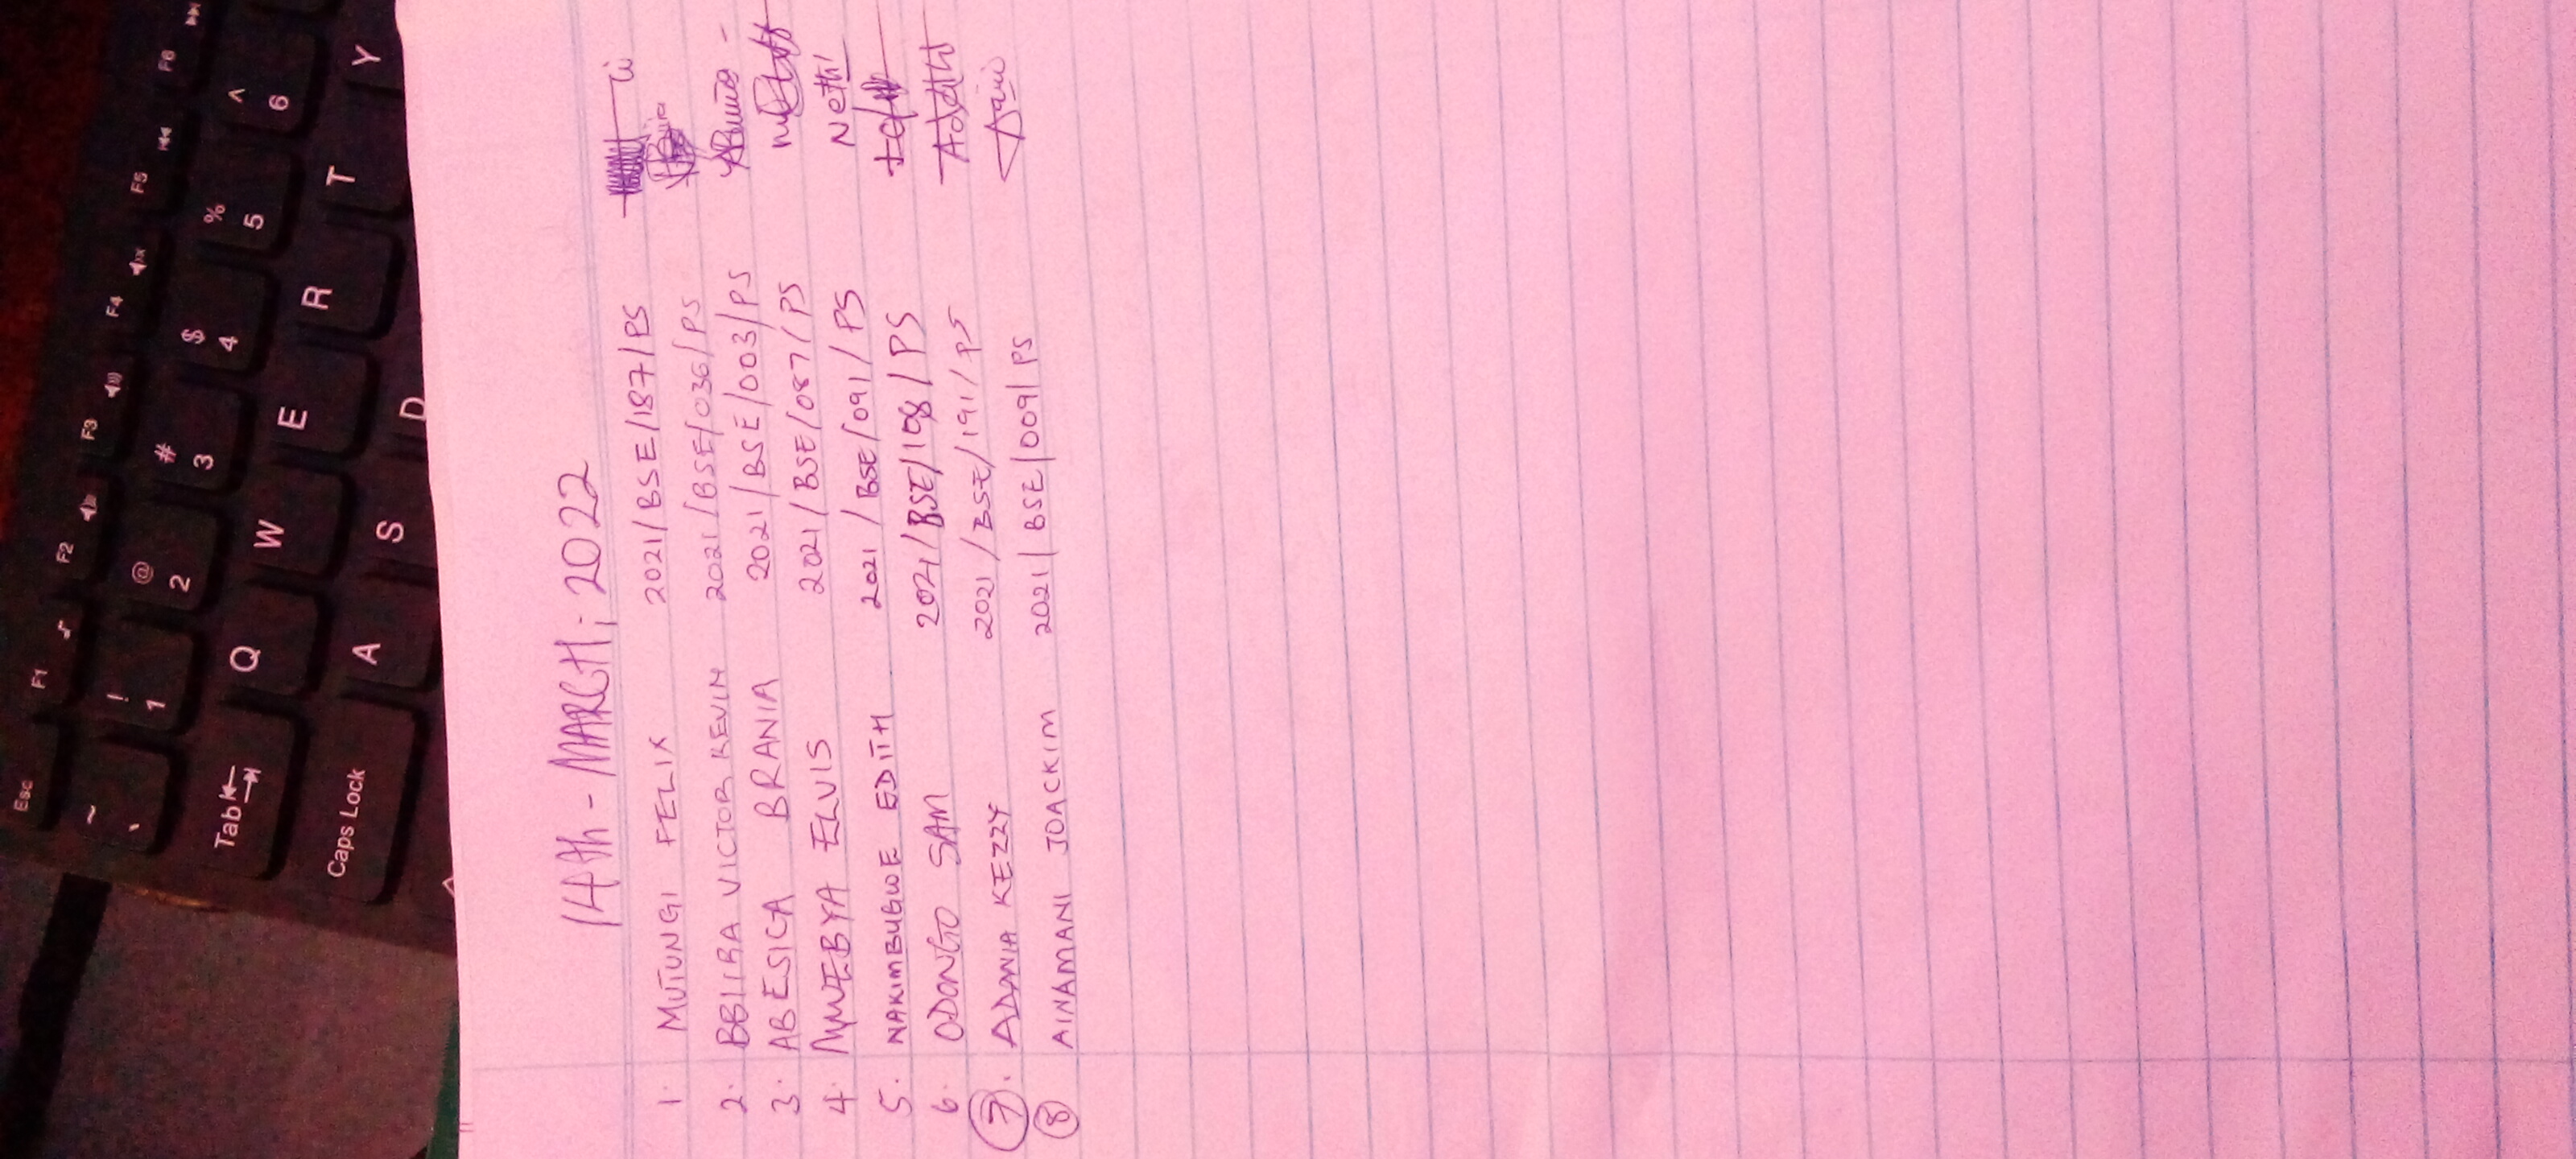 Esc F1 F2 F3 F4 F5 F6
~ ` ! 1 @ 2 # 3 $ 4 % 5 ^ 6
Tab Q W E R T Y
Caps Lock A S D
14th - MARCH; 2022
1. MUTUNGI FELIX 2021/BSE/187/PS
2. BBIIRA VICTOR KEVIN 2021/BSE/036/PS
3. ABESIGA BRANIA 2021/BSE/003/PS
4. MWEBYA ELVIS 2021/BSE/087/PS
5. NAKIMBUGWE EDITH 2021/BSE/091/PS
6. ODONGO SAM 2021/BSE/108/PS
7. ADANIA KEZZY 2021/BSE/191/PS
8 AINAMANI JOACKIM 2021/BSE/009/PS